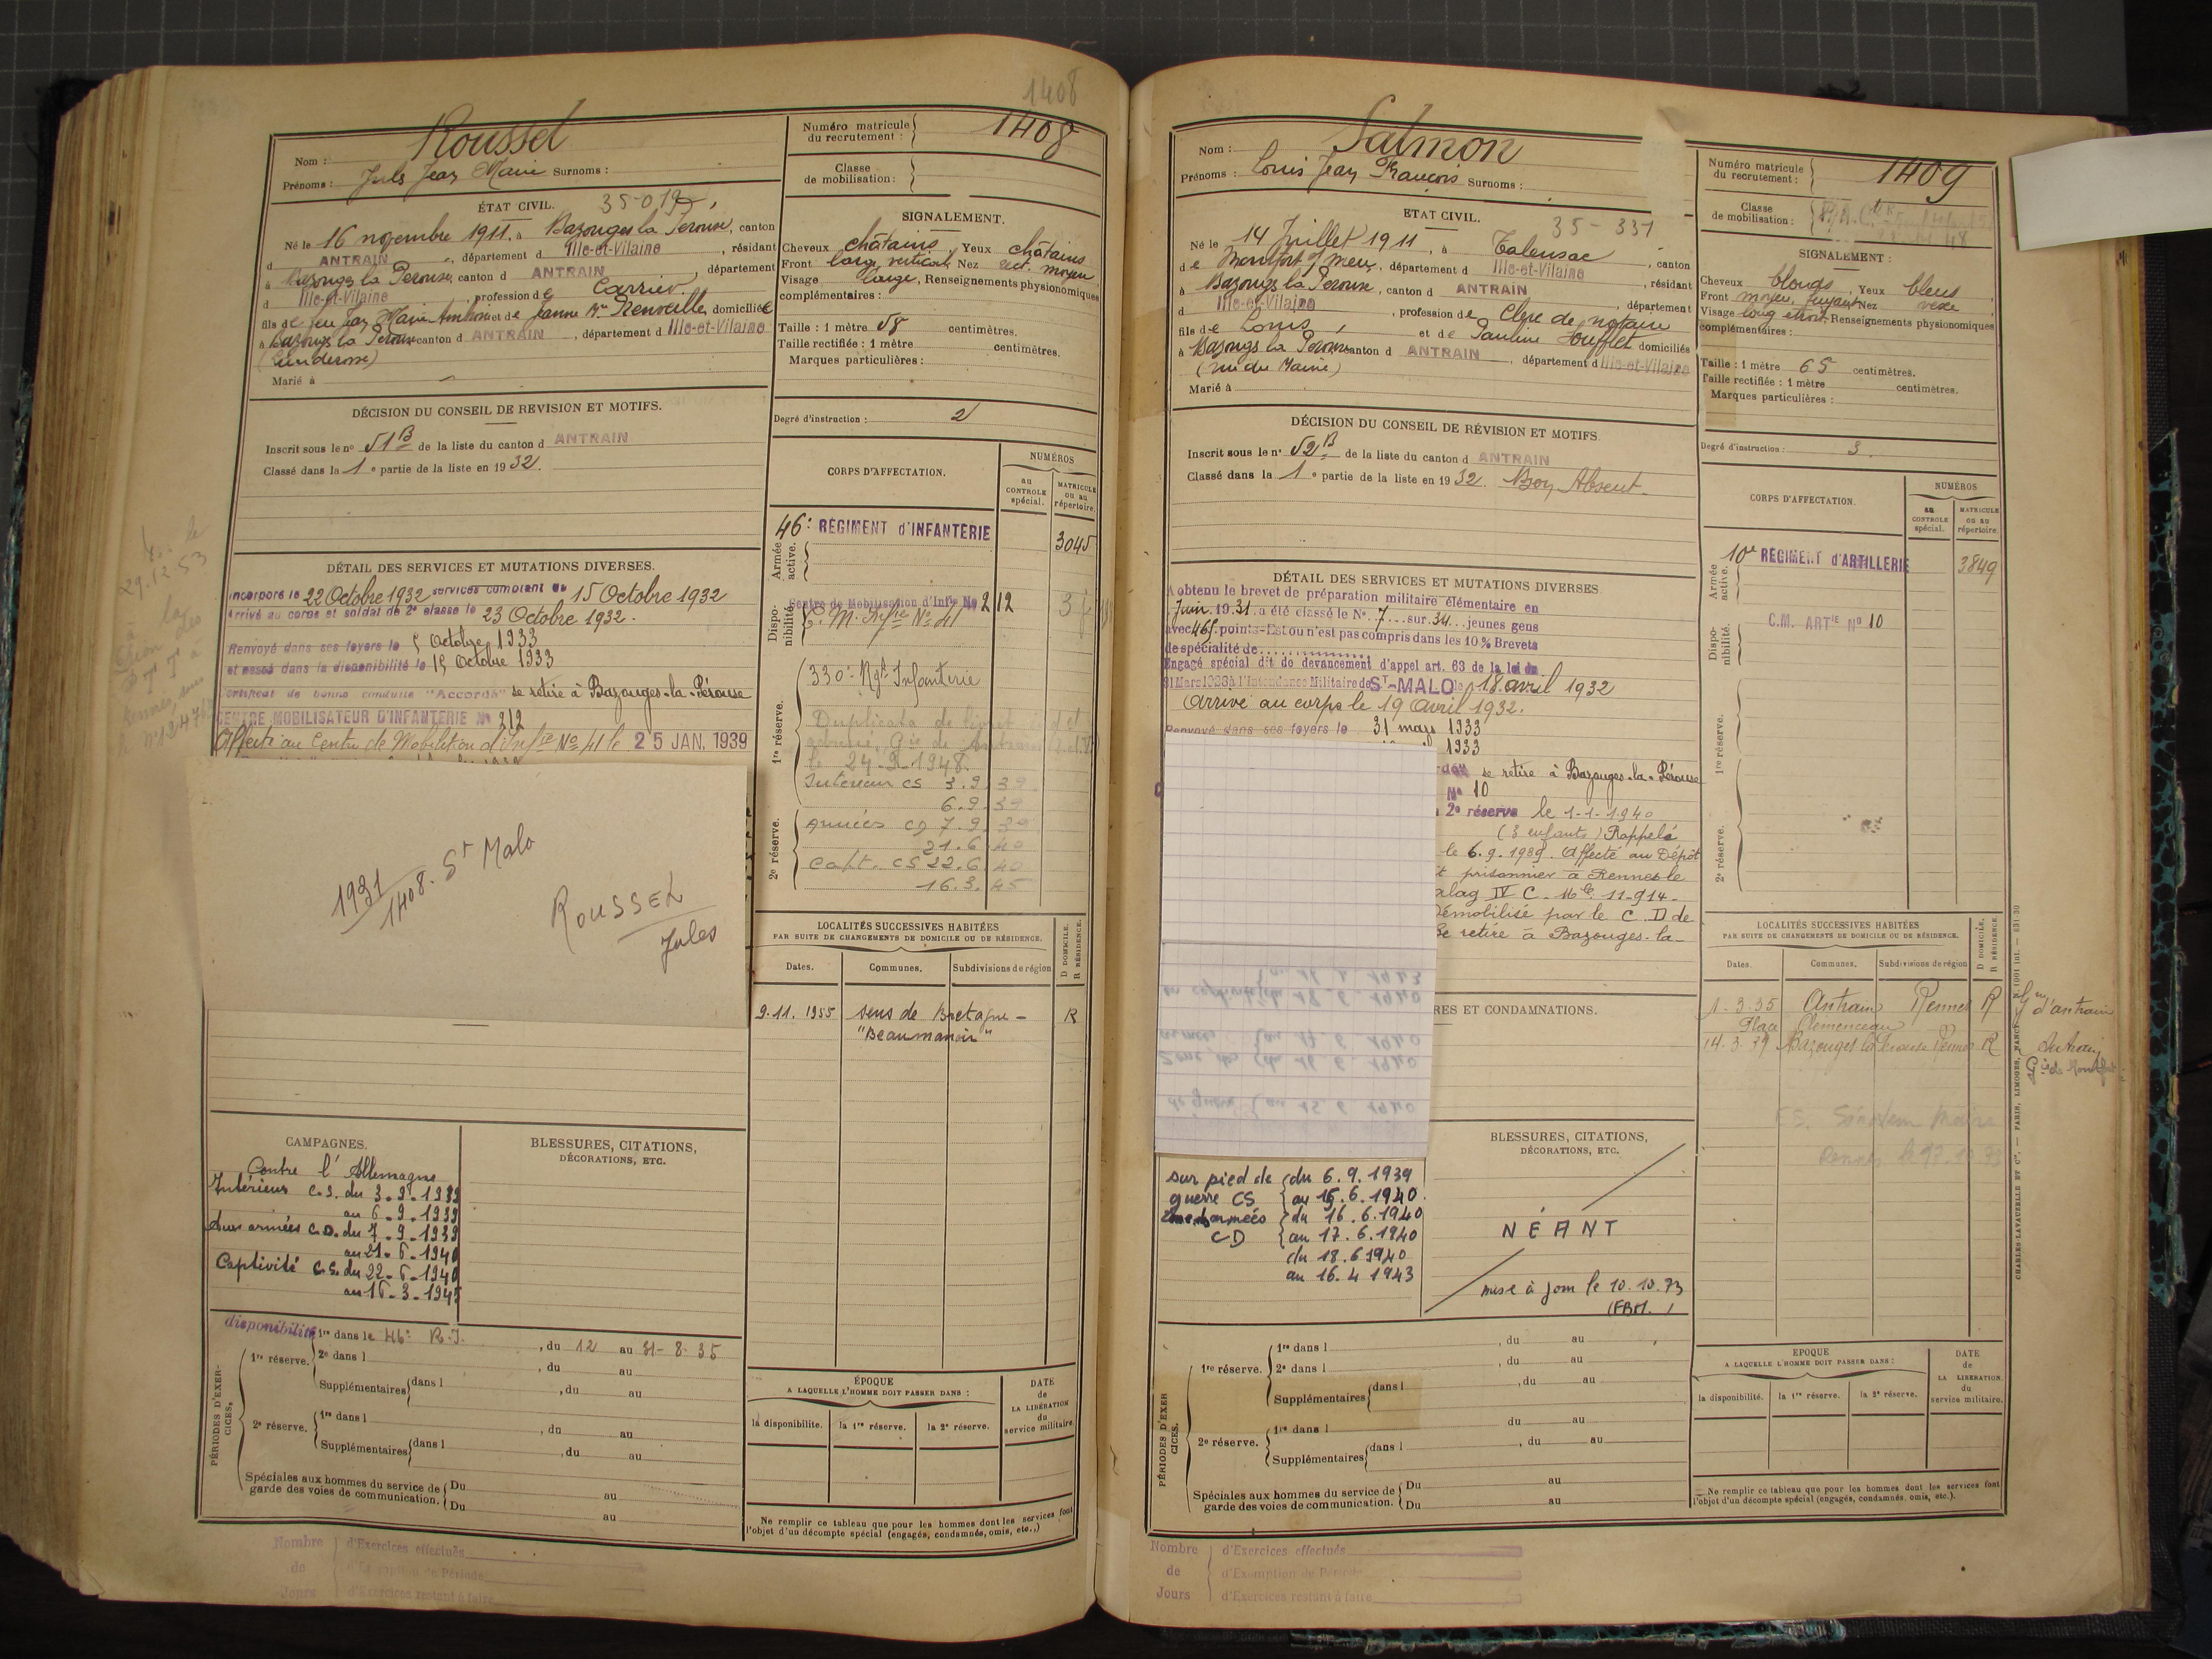 1408
Nom : Roussel
Prénoms : Jules Jean Marie Surnoms :
Numéro matricule du recrutement : 1408
Classe de mobilisation :
ÉTAT CIVIL. 35-019
Né le 16 novembre 1911, à Bazouges la Perouse, canton
d ANTRAIN, département d Ille-et-Vilaine, résidant
à Bazouges la Perouse, canton d ANTRAIN, département
d Ille-et-Vilaine, profession de Carrier,
fils de feu Jean Marie Ambroise et de Jeanne domiciliée
à Bazouges la Perouse canton d ANTRAIN, département d Ille-et-Vilaine
Marié à
SIGNALEMENT.
Cheveux châtains, Yeux châtains
Front large vertical, Nez rect. moyen
Visage large, Renseignements physionomiques
complémentaires :
Taille : 1 mètre 58 centimètres.
Taille rectifiée : 1 mètre centimètres.
Marques particulières :
Degré d'instruction : 2
DÉCISION DU CONSEIL DE REVISION ET MOTIFS.
Inscrit sous le nº 51 B de la liste du canton d ANTRAIN
Classé dans la 1e partie de la liste en 1932.
DÉTAIL DES SERVICES ET MUTATIONS DIVERSES.
Incorporé le 22 Octobre 1932 services comptant du 15 Octobre 1932
Arrivé au corps et soldat de 2e classe le 23 Octobre 1932.
Renvoyé dans ses foyers le Octobre 1933
et passé dans la disponibilité le 15 Octobre 1933
Certificat de bonne conduite "Accordé" se retire à Bazouges-la-Pérouse
CENTRE MOBILISATEUR D'INFANTERIE Nº 212
Affecté au Centre de Mobilisation d'Infie Nº 41 le 25 JAN. 1939
29.12.53
1931
1408. St Malo
ROUSSEL
Jules
CORPS D'AFFECTATION.
NUMÉROS
au CONTROLE spécial.
MATRICULE ou au répertoire.
Armée active.
46e RÉGIMENT d'INFANTERIE 3045
Disponibilité.
Centre de Mobilisation d'Infie Nº 212
C. M. Infie Nº 41
1re réserve.
330e Rgt Infanterie
Duplicata de livret
le 24-9-1948.
Intérieur CS 3.9.39
6.9.39
2e réserve.
Armées CD 7.9.39
21.6.40
Capt. CS 22.6.40
16.3.45
LOCALITÉS SUCCESSIVES HABITÉES
PAR SUITE DE CHANGEMENTS DE DOMICILE OU DE RÉSIDENCE.
D DOMICILE. R RÉSIDENCE.
Dates. Communes. Subdivisions de région
9.11.1955 Sens de Bretagne - R
"Beaumanoir"
CAMPAGNES.
Contre l'Allemagne
Intérieur C.S. du 3-9-1939
au 6-9-1939
Aux armées C.D. du 7-9-1939
au 21-6-1940
Captivité C.S. du 22-6-1940
au 16-3-1945
BLESSURES, CITATIONS,
DÉCORATIONS, ETC.
PÉRIODES D'EXERCICES.
disponibilité
1re réserve. 1re dans le 46e R.I., du 12 au 31-8-35
2e dans l , du au
Supplémentaires dans l , du au
2e réserve. 1re dans l , du au
Supplémentaires dans l , du au
Spéciales aux hommes du service de garde des voies de communication. Du au
Du au
ÉPOQUE
A LAQUELLE L'HOMME DOIT PASSER DANS :
la disponibilité. la 1re réserve. la 2e réserve.
DATE de LA LIBÉRATION du service militaire.
Ne remplir ce tableau que pour les hommes dont les services font
l'objet d'un décompte spécial (engagés, condamnés, omis, etc.,)
Nombre de Jours
d'Exercices effectués
d'Exemption de Période
d'Exercices restant à faire
Nom : Salmon
Prénoms : Louis Jean François Surnoms :
Numéro matricule du recrutement : 1409
Classe de mobilisation :
ETAT CIVIL. 35-331
Né le 14 Juillet 1911, à Talensac, canton
de Montfort s/ meu, département d Ille-et-Vilaine, résidant
à Bazouges la Perouse, canton d ANTRAIN, département
d Ille-et-Vilaine, profession de Clerc de notaire
fils de Louis, et de Pauline Houfflet domiciliés
à Bazouges la Perouse canton d ANTRAIN, département d Ille-et-Vilaine
Marié à
SIGNALEMENT :
Cheveux blonds, Yeux bleus
Front moyen, fuyant Nez vexe
Visage long étroit, Renseignements physionomiques
complémentaires :
Taille : 1 mètre 65 centimètres.
Taille rectifiée : 1 mètre centimètres.
Marques particulières :
Degré d'instruction : 3.
DÉCISION DU CONSEIL DE RÉVISION ET MOTIFS.
Inscrit sous le nº 52 B de la liste du canton d ANTRAIN
Classé dans la 1e partie de la liste en 1932. Bon Absent.
DÉTAIL DES SERVICES ET MUTATIONS DIVERSES.
A obtenu le brevet de préparation militaire élémentaire en
Juin 1931 a été classé le Nº 7 sur 34 jeunes gens
avec 465 points-Est ou n'est pas compris dans les 10% Brevets
de spécialité de
Engagé spécial dit de devancement d'appel art. 63 de la loi du
31 Mars 1928 à l'Intendance Militaire de ST-MALO le 18 avril 1932
Arrivé au corps le 19 avril 1932.
Renvoyé dans ses foyers le 31 mars 1933
1933
se retire à Bazouges-la-Pérouse
Nº 10
2e réserve le 1-1-1940
(3 enfants) Rappelé
le 6.9.1939. Affecté au Dépôt
t prisonnier à Rennes le
alag IV C. Mle 11-914-
Démobilisé par le C.D de
Se retire à Bazouges-la-
RES ET CONDAMNATIONS.
sur pied de guerre CS du 6.9.1939
au 15.6.1940.
Zone des armées CD du 16.6.1940
au 17.6.1940
du 18.6.1940
au 16.4.1943
BLESSURES, CITATIONS,
DÉCORATIONS, ETC.
NÉANT
mise à jour le 10.10.73
CORPS D'AFFECTATION.
NUMÉROS
au CONTROLE spécial.
MATRICULE ou au répertoire.
Armée active.
10e RÉGIMENT d'ARTILLERIE 3849
Disponibilité.
C.M. ARTie Nº 10
1re réserve.
2e réserve.
LOCALITÉS SUCCESSIVES HABITÉES
PAR SUITE DE CHANGEMENTS DE DOMICILE OU DE RÉSIDENCE.
D DOMICILE. R RÉSIDENCE.
Dates. Communes. Subdivisions de région
1-3-35 Antrain Rennes R d'Antrain
Place Clemenceau
14.3.39 Bazouges la Perouse Rennes R Antrain
CHARLES-LAVAUZELLE ET Cie. — PARIS, LIMOGES, NANCY
PÉRIODES D'EXERCICES.
1re réserve. 1re dans l , du au
2e dans l , du au
Supplémentaires dans l , du au
2e réserve. 1re dans l du au
Supplémentaires dans l , du au
Spéciales aux hommes du service de garde des voies de communication. Du au
Du au
EPOQUE
A LAQUELLE L'HOMME DOIT PASSER DANS :
la disponibilité. la 1re réserve. la 2e réserve.
DATE de LA LIBÉRATION du service militaire.
Ne remplir ce tableau que pour les hommes dont les services font
l'objet d'un décompte spécial (engagés, condamnés, omis, etc.).
Nombre de Jours
d'Exercices effectués
d'Exemption de Période
d'Exercices restant à faire